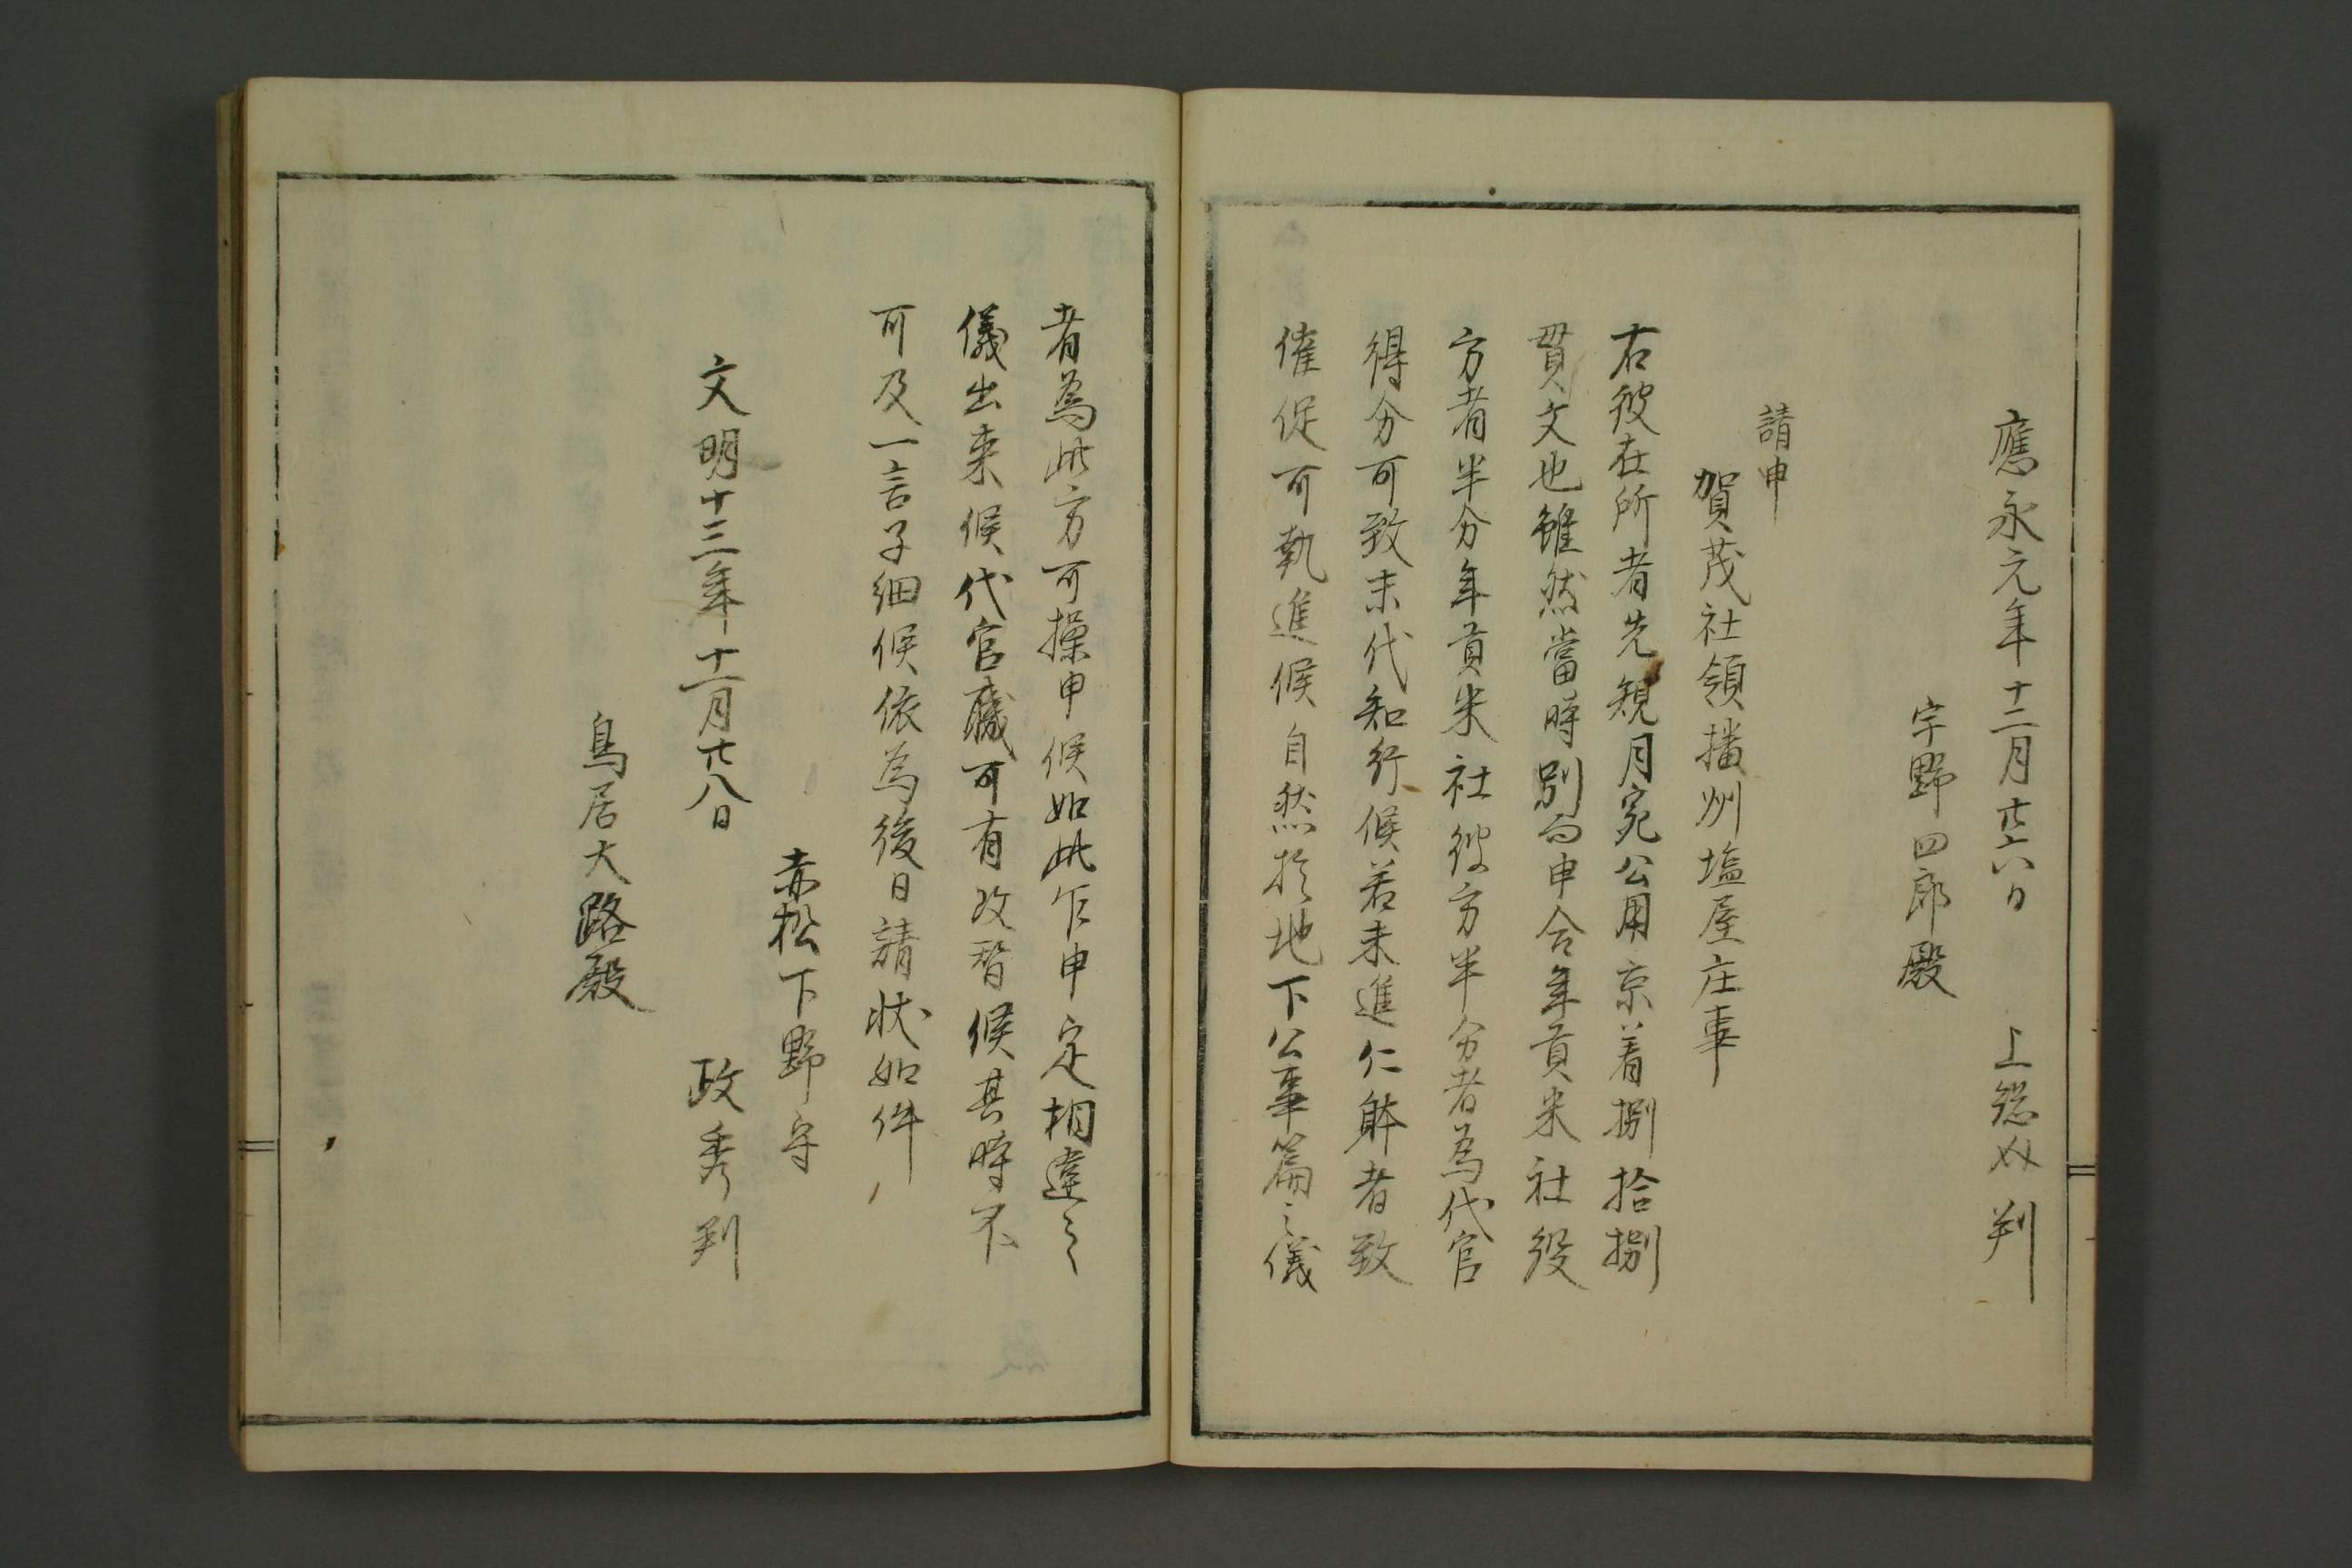 應永元年十二月廿六日　上総介判
宇野四郎殿
請申
賀茂社領播州塩屋庄事
右彼在所者先規月宛公用京着捌拾捌
貫文也雖然當時別而申合年貢米社役
方者半分年貢米社役方半分者為代官
得分可致末代知行候若未進仁躰者致
催促可執進候自然於地下公事篇之儀
者為此方可操申候如此乍申定相違之
儀出来候代官職可有改替候其時不
可及一言子細候依為後日請状如件
赤松下野守
文明十三年十一月廿八日　政秀判
鳥居大路殿